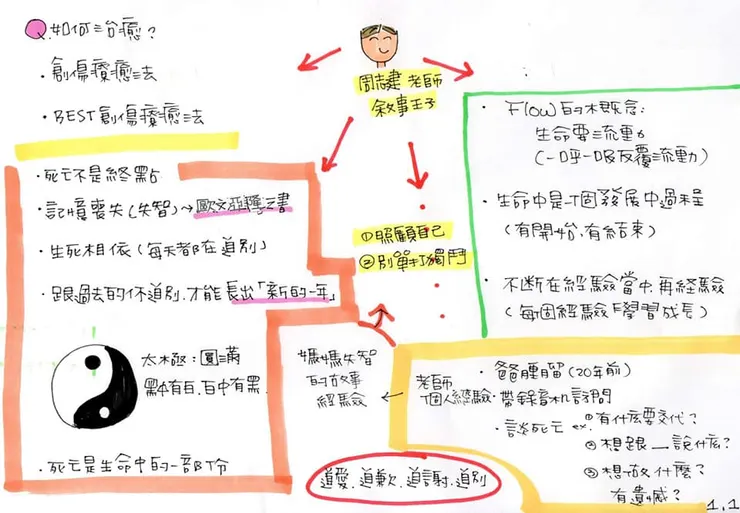 Q 如何治癒?
· 創傷療癒法
· BEST創傷療癒法
周志建 老師
敘事王子
· 死亡不是終點
· 記憶喪失(失智)→歐文亞隆之書
· 生死相依(每天都在道別)
· 跟過去的你道別,才能長出「新的一年」
太極:圓滿
黑中有白,白中有黑
· 死亡是生命中的一部份
①照顧自己
②別單打獨鬥
· Flow 的概念:
生命要流動
(一呼一吸反覆流動)
· 生命中是個發展中過程
(有開始,有結束)
· 不斷在經驗當中,再經驗
(每個經驗 學習成長)
媽媽失智
的故事
經驗
老師
個人經驗
· 爸腫瘤(20年前)
· 帶錄音機訪問
· 談死亡 ex.①有什麼要交代?
②想跟__說什麼?
③想做什麼?
有遺憾?
道愛、道歉、道謝、道別
1.1